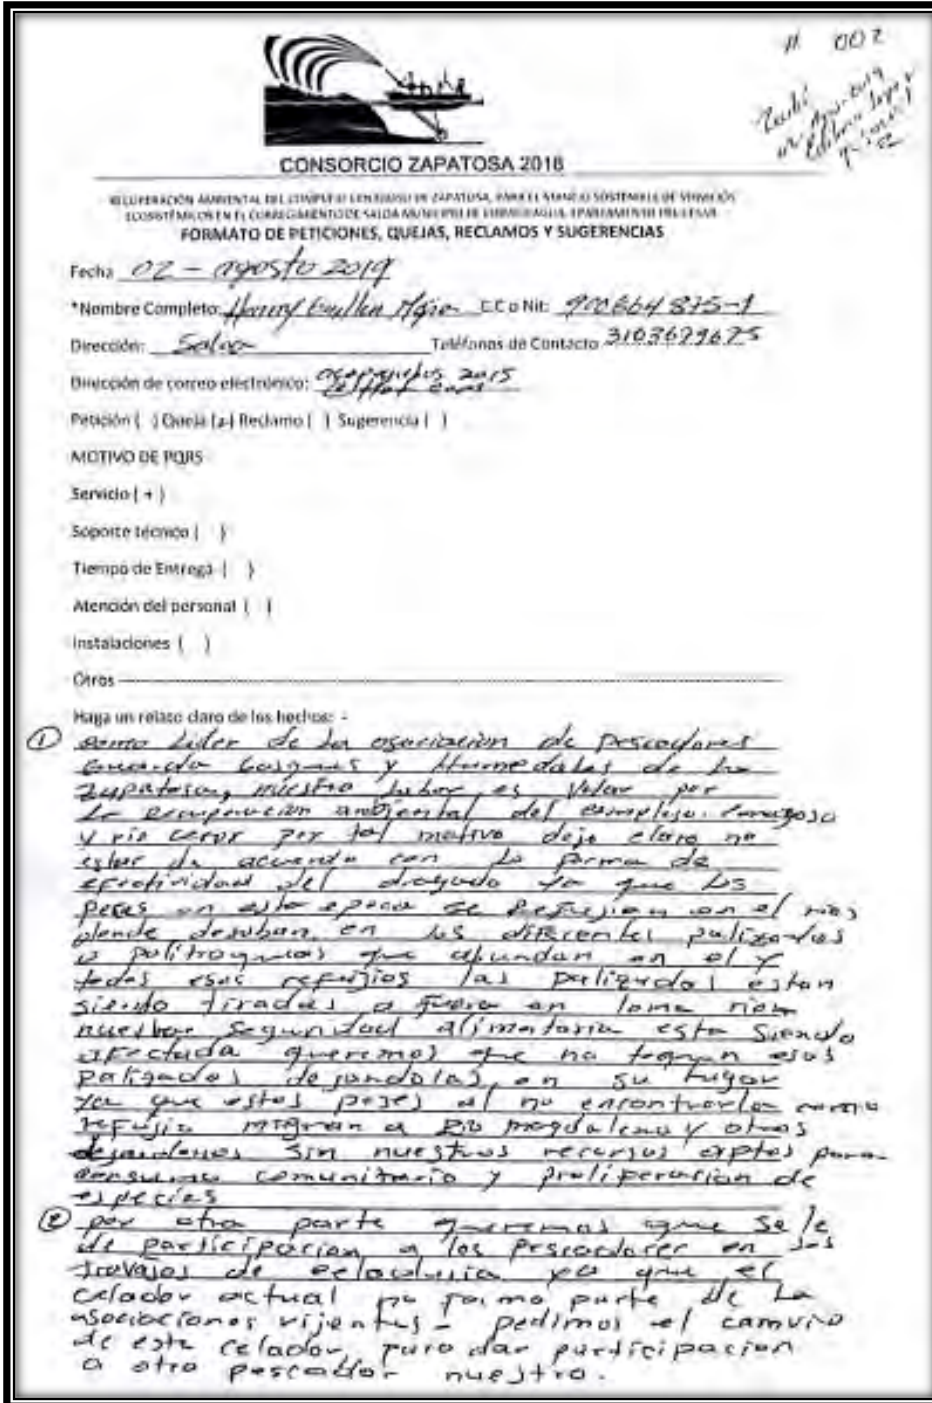 # 002
Recibí
CONSORCIO ZAPATOSA 2018
RECUPERACIÓN AMBIENTAL DEL COMPLEJO CENAGOSO DE ZAPATOSA, PARA EL MANEJO SOSTENIBLE DE SERVICIOS
ECOSISTÉMICOS EN EL CORREGIMIENTO DE SALOA MUNICIPIO DE CHIMICHAGUA, DEPARTAMENTO DEL CESAR
FORMATO DE PETICIONES, QUEJAS, RECLAMOS Y SUGERENCIAS
Fecha 02 - agosto 2019
*Nombre Completo: C.C o Nit: 900664875-1
Dirección: Saloa Teléfonos de Contacto 3103629675
Dirección de correo electrónico: 2015
Petición ( ) Queja (x) Reclamo ( ) Sugerencia ( )
MOTIVO DE PQRS
Servicio ( + )
Soporte técnico ( )
Tiempo de Entrega ( )
Atención del personal ( )
Instalaciones ( )
Otros
Haga un relato claro de los hechos: -
① como Lider de la asociacion de pescadores
y Humedales de la
Zapatosa, nuestra labor es Velar por
la recuperacion ambiental del complejo cenagoso
y rio cesar por tal motivo dejo claro no
estar de acuerdo con la forma de
efectividad del dragado ya que los
peces en esta epoca se Refujian en el rios
donde desoban, en los diferentes palizadas
o que abundan en el y
todas esas refujios las palizadas estan
siendo tiradas a fuera en
nuestra Seguridad alimentaria esta Siendo
afectada queremos que no esas
palizadas dejandolas, en su lugar
ya que estos peses al no encontrarlas como
refujio migran a Rio magdalena y otros
dejandonos Sin nuestros recursos aptos para
consumo comunitario y proliferacion de
especies
② por otra parte queremos que se le
de participacion a los Pescadores en los
travajos de ya que el
celador actual no formo parte de la
asociaciones vijentes - pedimos el camvio
de este celador, para dar participacion
a otro pescador nuestro.